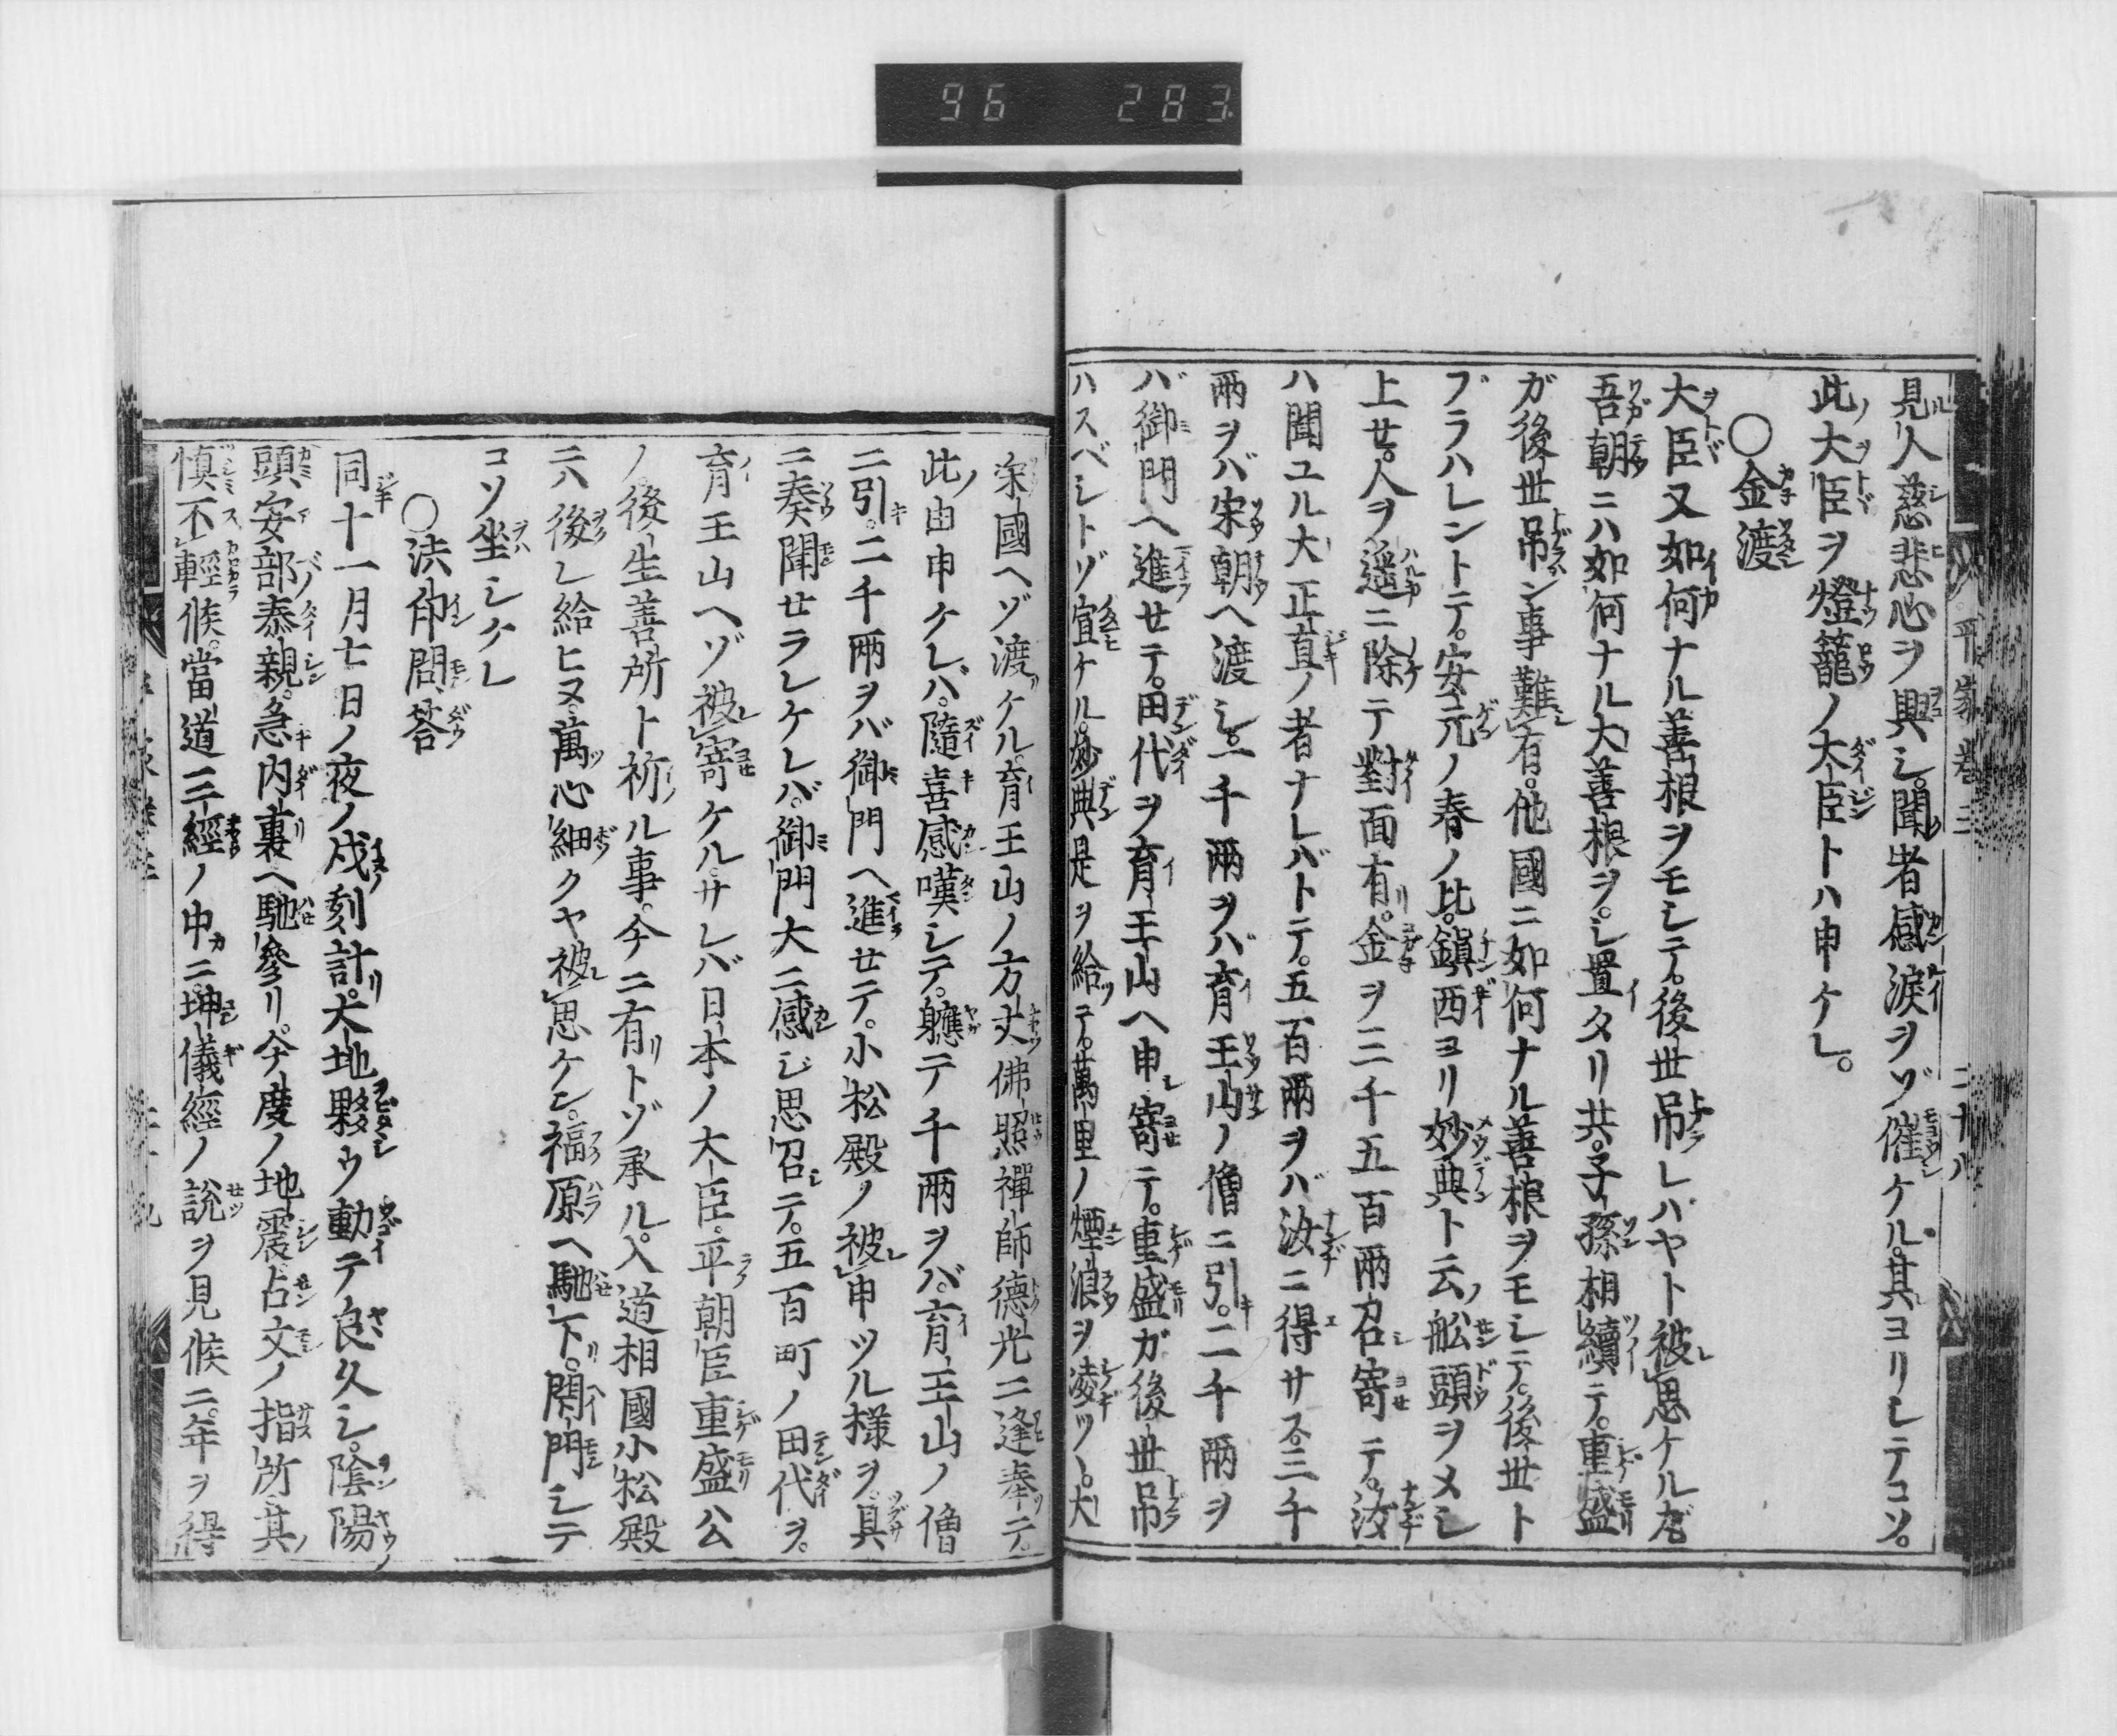 96 283
平家巻三 二十八
見人慈悲心ヲ興シ。聞者感涙ヲゾ催ケル。其ヨリシテコソ。
此大臣ヲ燈籠ノ大臣トハ申ケレ。
○金渡
大臣又如何ナル善根ヲモシテ。後世吊レハヤト被思ケルガ
吾朝ニハ如何ナル大善根ヲ。シ置タリ共。子孫相續テ。重盛
ガ後世吊ン事難有。他國ニ如何ナル善根ヲモシテ。後世ト
ブラハレントテ。安元ノ春ノ比。鎭西ヨリ妙典ト云舩頭ヲメシ
上セ。人ヲ遥ニ除テ對面有。金ヲ三千五百兩召寄テ。汝
ハ聞ユル大正直ノ者ナレバトテ。五百兩ヲバ汝ニ得サス。三千
兩ヲバ宋朝ヘ渡シ。一千兩ヲバ育王山ノ僧ニ引。二千兩ヲ
バ御門ヘ進セテ。田代ヲ育王山ヘ申寄テ。重盛ガ後世吊
ハスベシトゾ宣ケル。妙典是ヲ給テ。萬里ノ煙浪ヲ凌ツヽ。大
宋國ヘゾ渡ケル。育王山ノ方丈佛照禪師德光ニ逢奉テ。
此由申ケレバ。隨喜感嘆シテ。軈テ千兩ヲバ。育王山ノ僧
ニ引。二千兩ヲバ御門ヘ進セテ。小松殿ノ被申ツル様ヲ。具
ニ奏聞せラレケレバ。御門大ニ感じ思召テ。五百町ノ田代ヲ。
育王山ヘゾ被寄ケル。サレバ日本ノ大臣。平朝臣重盛公
ノ。後生善所ト祈ル事。今ニ有トゾ承ル。入道相國小松殿
ニハ後レ給ヒヌ。萬心細クヤ被思ケン。福原ヘ馳下。閇門シテ
コソ坐シケレ
○法印問答
同十一月七日ノ夜ノ戌刻計。大地夥ウ動テ良久シ。陰陽
頭安部泰親。急内裏ヘ馳參リ。今度ノ地震占文ノ指所。其
愼不輕候。當道三經ノ中ニ。坤儀經ノ說ヲ見候ニ。年ヲ得